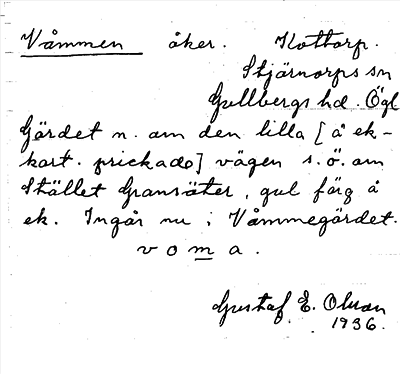 Våmmen åker. Kottorp.
Stjärnorps sn
Gullbergs hd. Ögl
Gärdet n. om den lilla [å ek-
kart. prickade] vägen s. ö. om
Stället Gransäter, gul färg å
ek. Ingår nu i Våmmegärdet.
v o m a .
Gustaf E. Olson
1936.